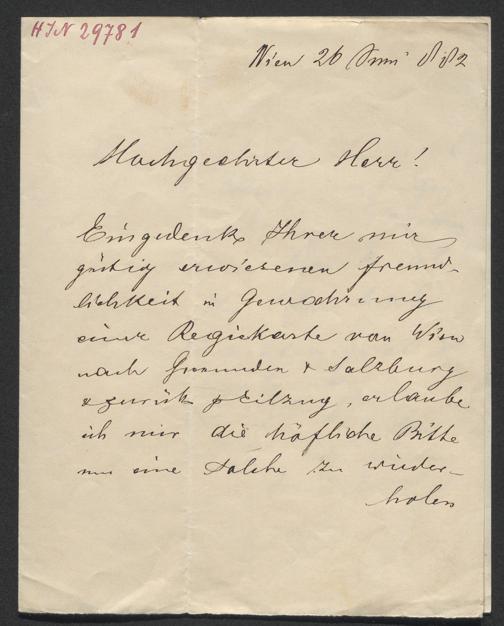 HIN 29781
Wien 26 Juni 882
Hochgeehrter Herr!
Eingedenk Ihrer mir
gütig erwiesenen freund-
lichkeit in Gewährung
einer Regiekarte von Wien
nach Gmunden & Salzburg
& zurück pr Eilzug, erlaube
ich mir die höfliche Bitte
um eine solche zu wieder-
holen